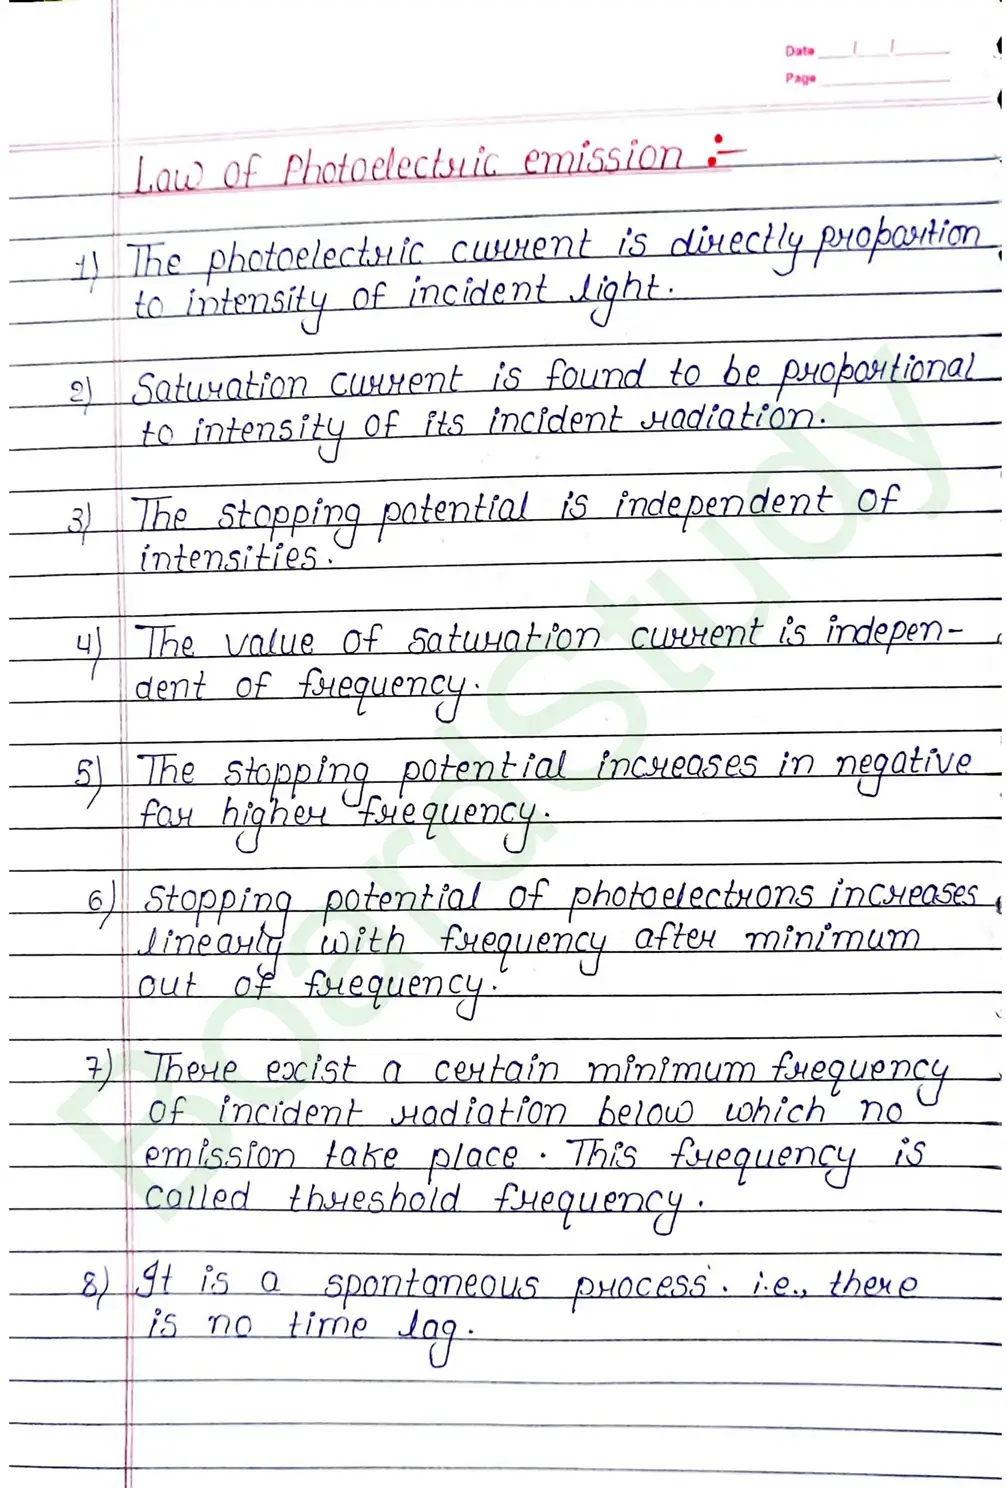 Date
Page
Law of Photoelectric emission :-
1) The photoelectric current is directly proportion
to intensity of incident light.
2) Saturation current is found to be proportional
to intensity of its incident radiation.
3) The stopping potential is independent of
intensities.
4) The value of saturation current is indepen-
dent of frequency.
5) The stopping potential increases in negative
for higher frequency.
6) Stopping potential of photoelectrons increases
linearly with frequency after minimum
out of frequency.
7) There excist a certain minimum frequency
of incident radiation below which no
emission take place. This frequency is
called threshold frequency.
8) It is a spontaneous process. i.e., there
is no time lag.
BoardStudy